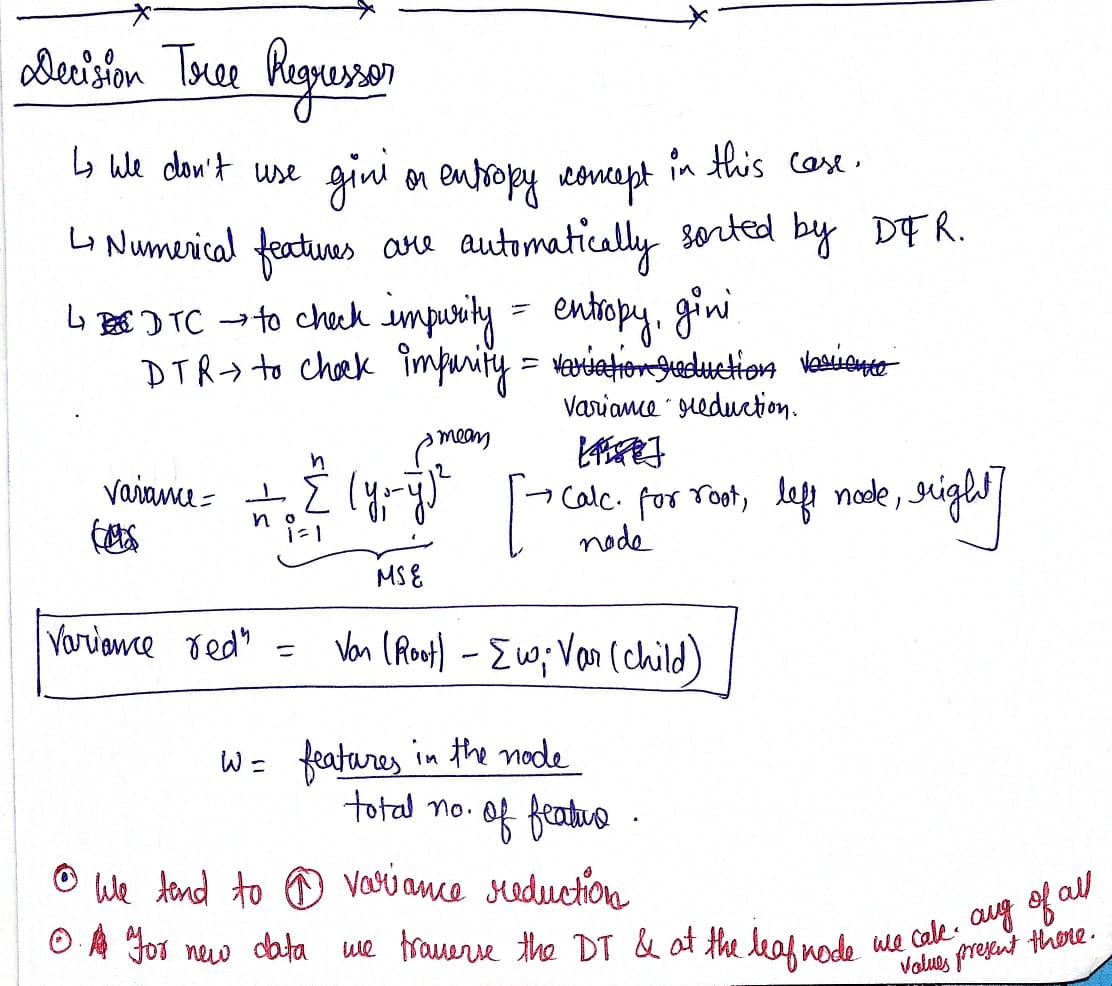 Decision Tree Regressor
↳ We don't use gini or entropy concept in this case.
↳ Numerical features are automatically sorted by DTR.
↳ DTC → to check impurity = entropy, gini
DTR → to check impurity = variation reduction variance
variance reduction.
[MSE]
variance = 1/n Σ (i=1 to n) (yi - ȳ)² → mean
MSE
[→ Calc. for root, left node, right node]
Variance redⁿ = Var (Root) - Σ wi Var (child)
w = features in the node
total no. of featue.
⊙ We tend to ↑ variance reduction
⊙ for new data we traverse the DT & at the leaf node we calc. avg of all values present there.